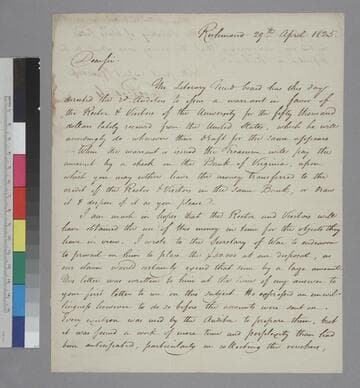 Richmond 29th April 1825.
Dear Sir
The Literary Fund board has this day
directed the 2d Auditor to issue a warrant in favor of
the Rector & Visitors of the University for the fifty thousand
dollars lately received from the United States, which he will
accordingly do whenever their draft for the same appears
When the warrant is issued the Treasurer will pay the
amount by a check on the Bank of Virginia, upon
which you may either have the money transferred to the
credit of the Rector & Visitors in the same Bank, or draw
it & dispose of it as you please.
I am much in hopes that the Rector and Visitors will
have obtained the use of this money in time for the objects they
have in view. I wrote to the Secretary of War to endeavor
to prevail on him to place the $50.000 at our disposal, as
our claim would certainly exceed that sum by a large amount
My letter was written to him at the time of my answer to
your first letter to me on this subject. He expressed an unwil-
lingness however to do so before the accounts were sent on.
Every exertion was used by the Auditor to prepare them, but
it was found a work of more time and perplexity than had
been anticipated, particularly in collecting the vouchers,